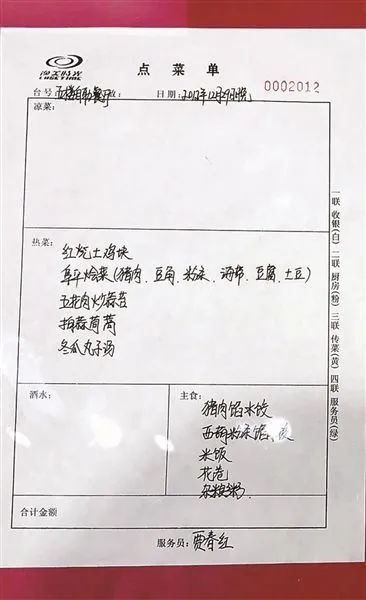 点菜单
0002012
台号 五楼自助餐厅 日期:2012年12月29日晚
凉菜:
热菜:
红烧土鸡块
阜平烩菜(猪肉、豆角、粉条、海带、豆腐、土豆)
五花肉炒蒜苔
拍蒜茼蒿
冬瓜丸子汤
酒水:
主食:
猪肉馅水饺
西葫粉条馅
米饭
花卷
杂粮粥
合计金额
服务员: 贾春红
一联 收银(白) 二联 厨房(粉) 三联 传菜(黄) 四联 服务员(绿)